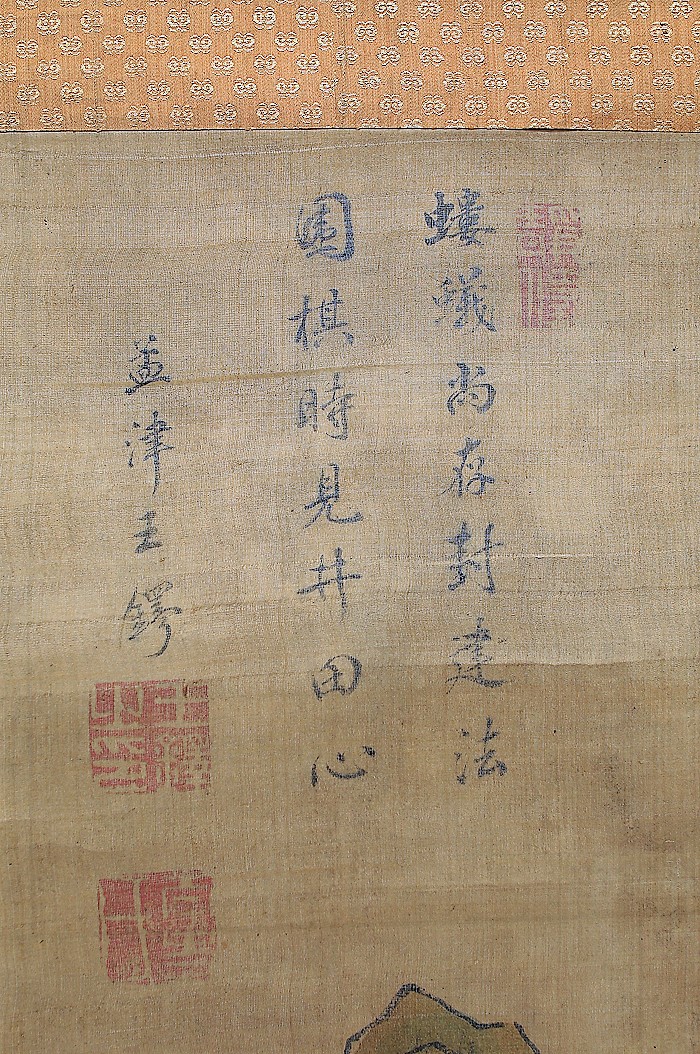 螻蟻尚存封建法
围棋時見井田心
孟津王鐸